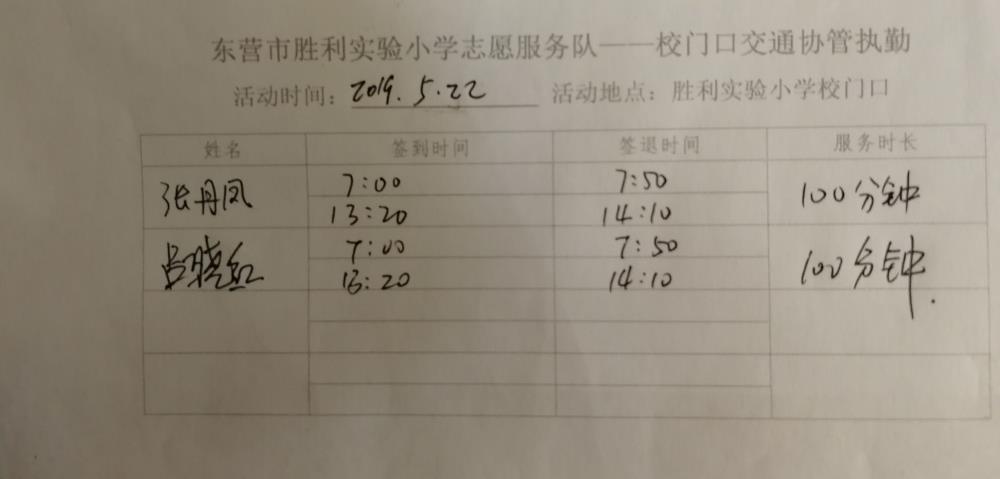 东营市胜利实验小学志愿服务队——校门口交通协管执勤
活动时间：2019.5.22 活动地点：胜利实验小学校门口
姓名 签到时间 签退时间 服务时长
张丹凤 7:00 7:50 100分钟
13:20 14:10
吕晓红 7:00 7:50 100分钟.
13:20 14:10